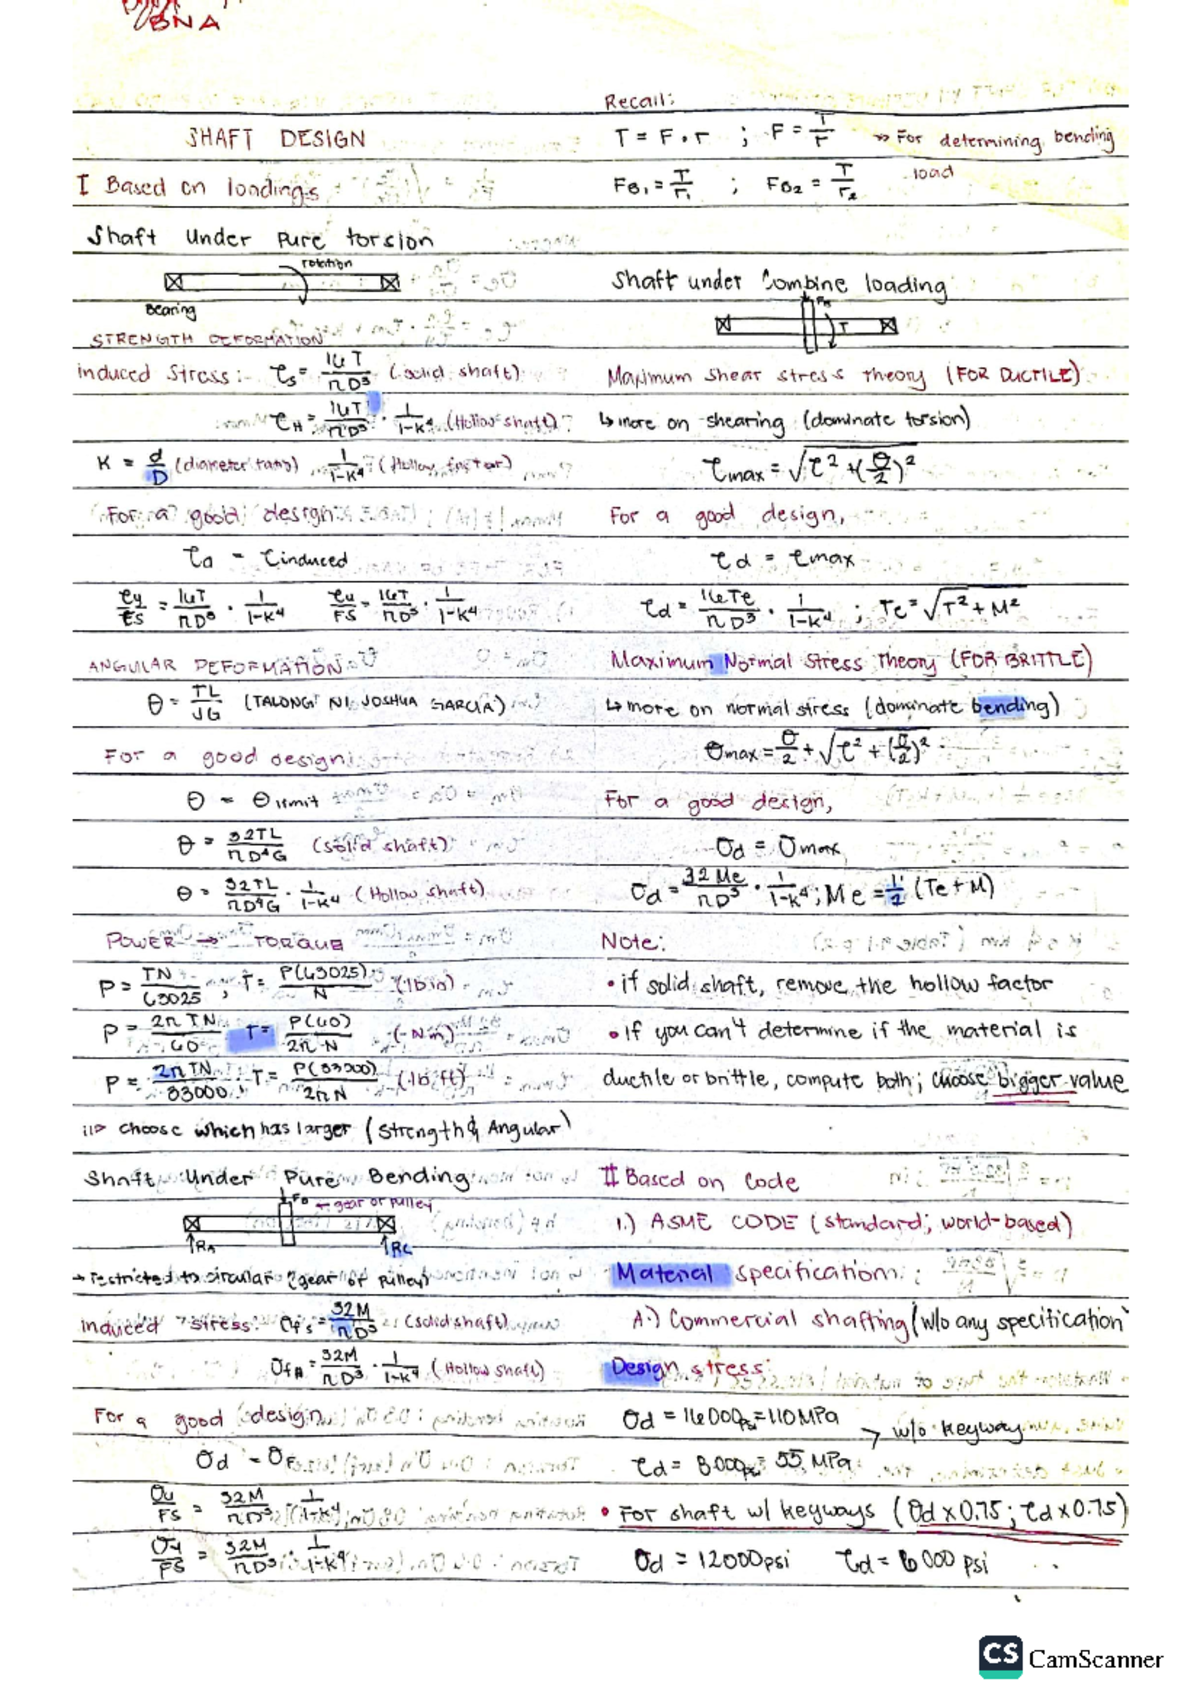 BNA
SHAFT DESIGN
I Based on loadings
Shaft Under Pure torsion
rotation
Bearing
STRENGTH DEFORMATION
induced Stress: τs = 16T/πD³ (Solid shaft)
τH = 16T/πD³ · 1/1-K⁴ (Hollow shaft)
K = d/D (diameter ratio) 1/1-K⁴ (Hollow factor)
For a good design:
τd = τinduced
τy/FS = 16T/πD³ · 1/1-K⁴ τu/FS = 16T/πD³ · 1/1-K⁴
ANGULAR DEFORMATION
θ = TL/JG (TALONG NI JOSHUA GARCIA)
For a good design:
θ = θlimit
θ = 32TL/πD⁴G (solid shaft)
θ = 32TL/πD⁴G · 1/1-K⁴ (Hollow shaft)
POWER → TORQUE
P = TN/63025 ; T = P(63025)/N (lb in)
P = 2πTN/60 T = P(60)/2πN (Nm)
P = 2πTN/33000 ; T = P(33000)/2πN (lb.ft)
choose which has larger (strength & Angular)
Shaft Under Pure Bending
FB ← gear or pulley
RA RC
→ restricted to circular (gear or pulley)
induced stress: σfs = 32M/πD³ (solid shaft)
σfH = 32M/πD³ · 1/1-K⁴ (Hollow shaft)
For a good design
σd = σF
σu/FS = 32M/πD³ · 1/1-K⁴
σy/FS = 32M/πD³ · 1/1-K⁴
Recall:
T = F · r ; F = T/r → For determining bending
load
FB1 = T/r1 ; FB2 = T/r2
Shaft under Combine loading
FB
T
Maximum shear stress Theory (FOR DUCTILE)
↳ more on shearing (dominate torsion)
τmax = √τ² + (σ/2)²
For a good design,
τd = τmax
τd = 16Te/πD³ · 1/1-K⁴ ; Te = √T² + M²
Maximum Normal Stress Theory (FOR BRITTLE)
↳ more on normal stress (dominate bending)
σmax = σ/2 + √τ² + (σ/2)²
For a good design,
σd = σmax
σd = 32Me/πD³ · 1/1-K⁴ ; Me = 1/2 (Te + M)
Note:
• if solid shaft, remove the hollow factor
• If you can't determine if the material is
ductile or brittle, compute both; choose bigger value
II Based on Code
1.) ASME CODE (standard; world-based)
Material specification:
A.) Commercial shafting (w/o any specification
Design stress:
σd = 16000psi = 110MPa
→ w/o keyway
τd = 8000psi = 55 MPa
• For shaft w/ keyways (σd x 0.75 ; τd x 0.75)
σd = 12000psi τd = 6000 psi
CS CamScanner